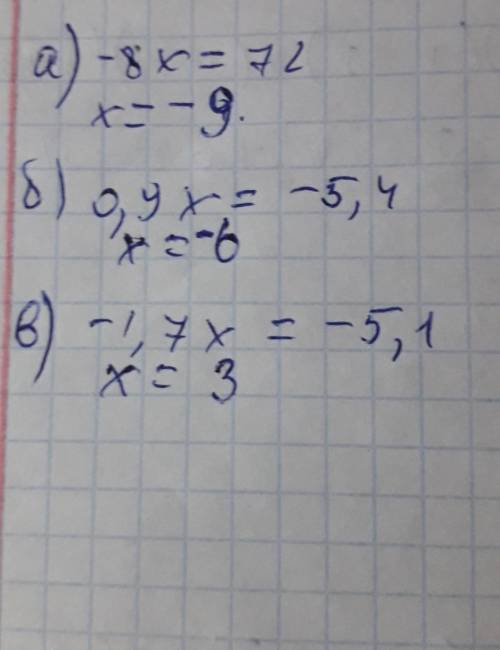 а) -8x = 72
x = -9.
б) 0,9x = -5,4
x = -6
в) -1,7x = -5,1
x = 3